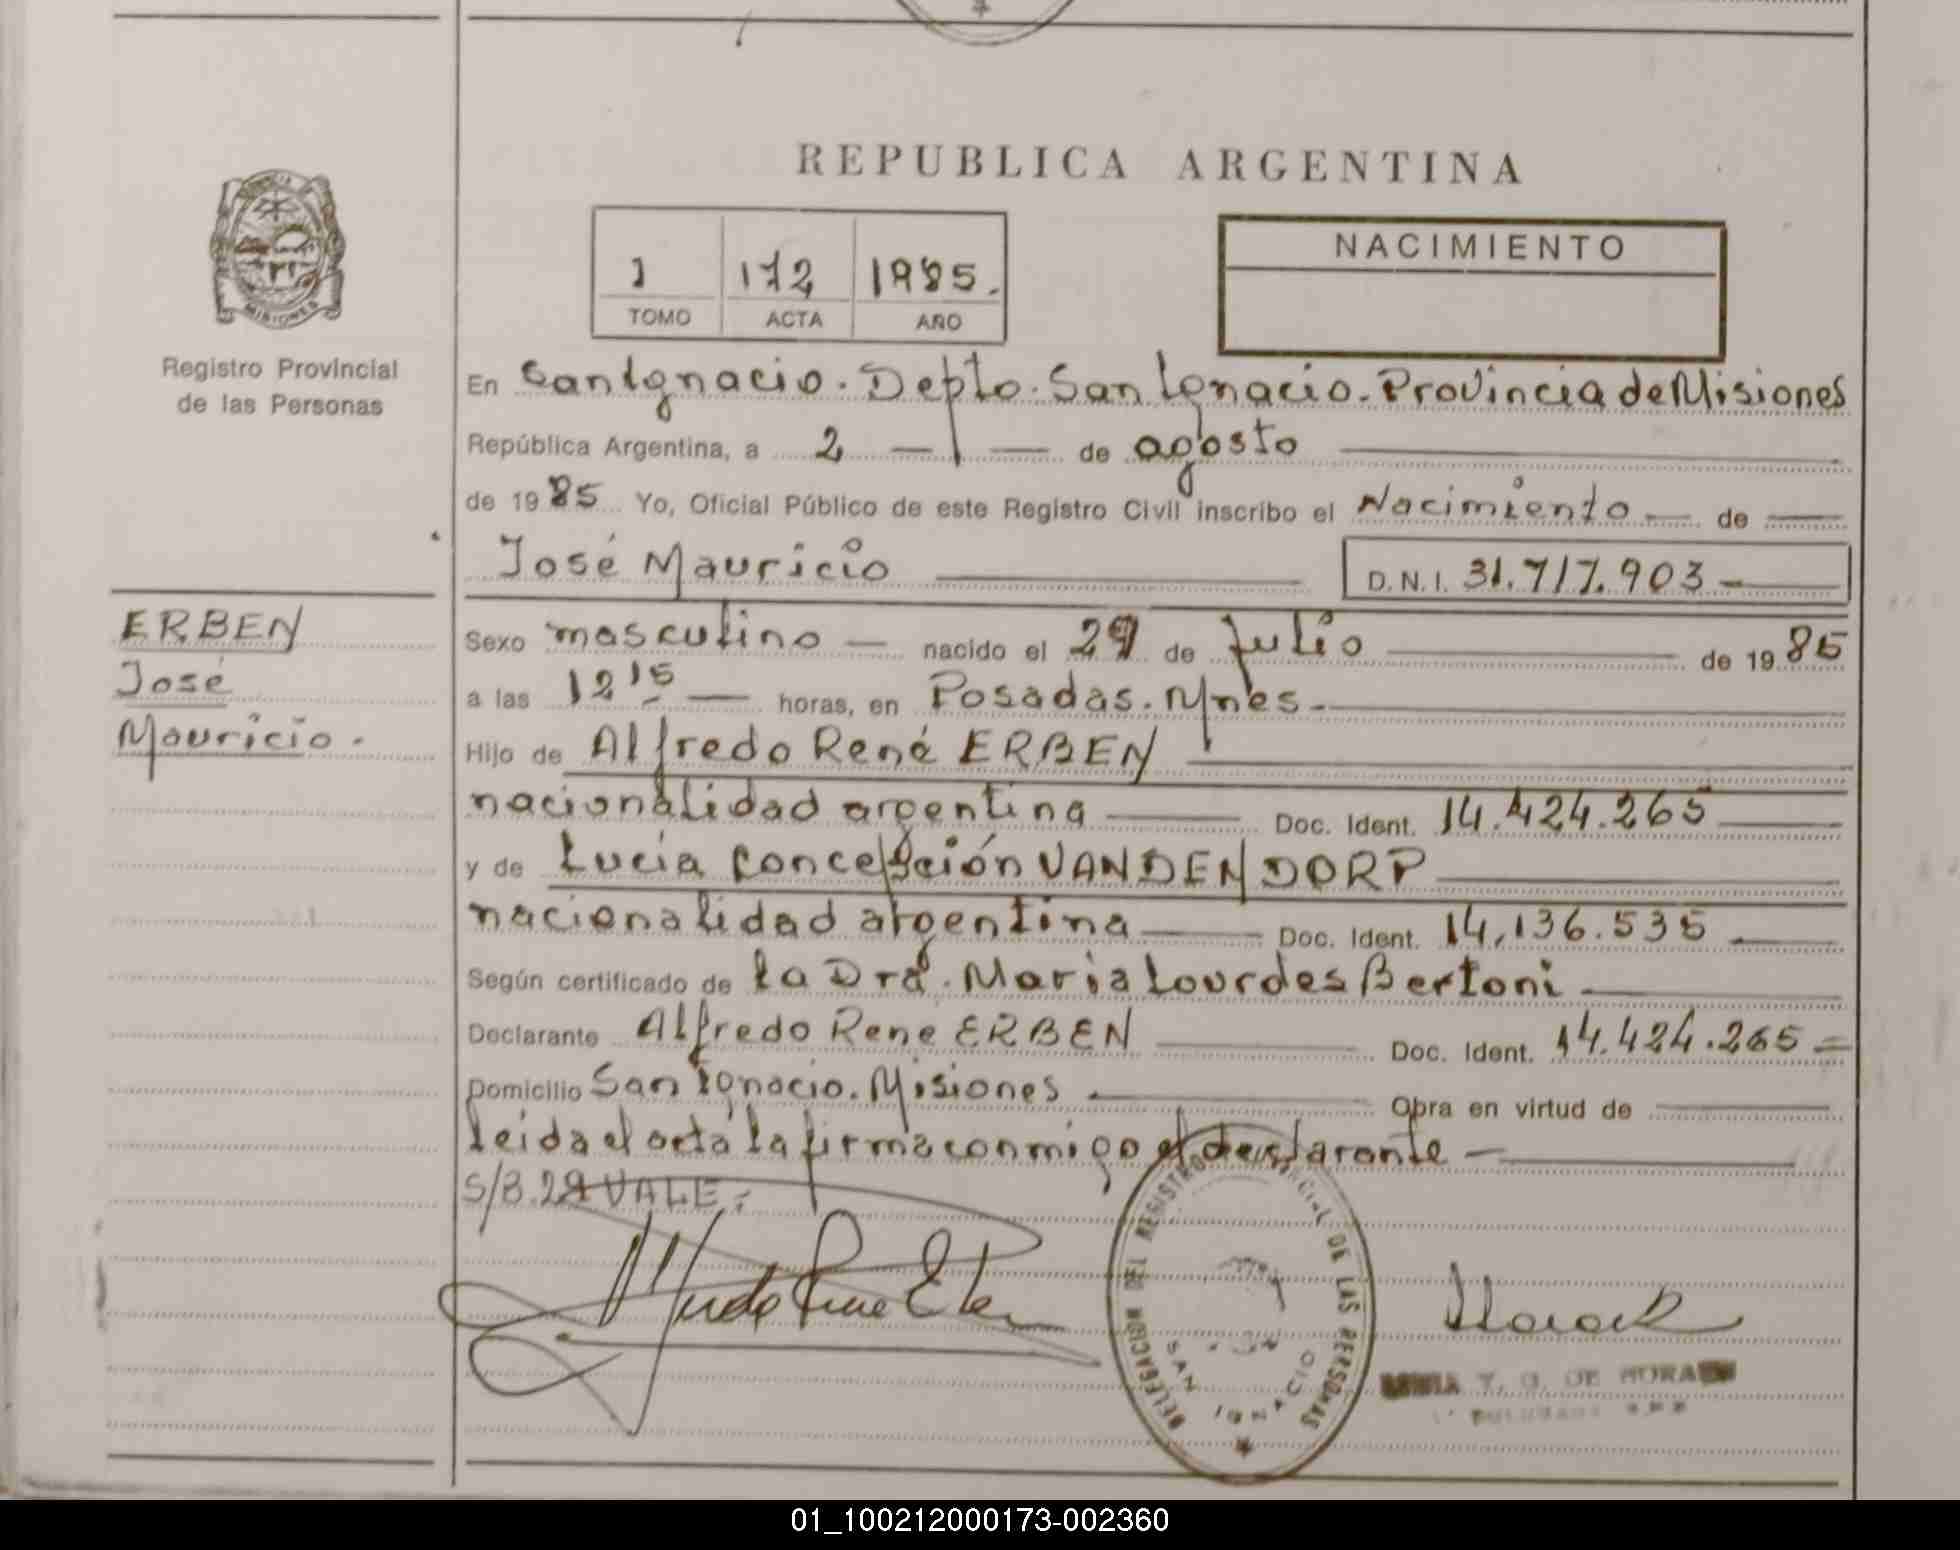 REPUBLICA ARGENTINA
1 172 1985.
TOMO ACTA AÑO
NACIMIENTO
MISIONES
Registro Provincial
de las Personas
En San Ignacio. Depto. San Ignacio. Provincia de Misiones
República Argentina, a 2 — de agosto
de 1985 Yo, Oficial Público de este Registro Civil inscribo el Nacimiento — de —
José Mauricio — D.N.I. 31.717.903 —
ERBEN
José
Mauricio.
Sexo masculino — nacido el 29 de Julio — de 1985
a las 12 15 — horas, en Posadas. Mnes. —
Hijo de Alfredo René ERBEN —
nacionalidad argentina — Doc. Ident. 14.424.265 —
y de Lucía Concepción VANDENDORP —
nacionalidad argentina — Doc. Ident. 14.136.535 —
Según certificado de la Dra. Maria Lourdes Bertoni —
Declarante Alfredo Rene ERBEN — Doc. Ident. 14.424.265 =
Domicilio San Ignacio. Misiones — Obra en virtud de —
leida el acta la firma conmigo el declarante —
S/B. 29 VALE.-
DELEGACION DEL REGISTRO PROVINCIAL DE LAS PERSONAS
SAN IGNACIO
Y. G. DE MORA
01_100212000173-002360